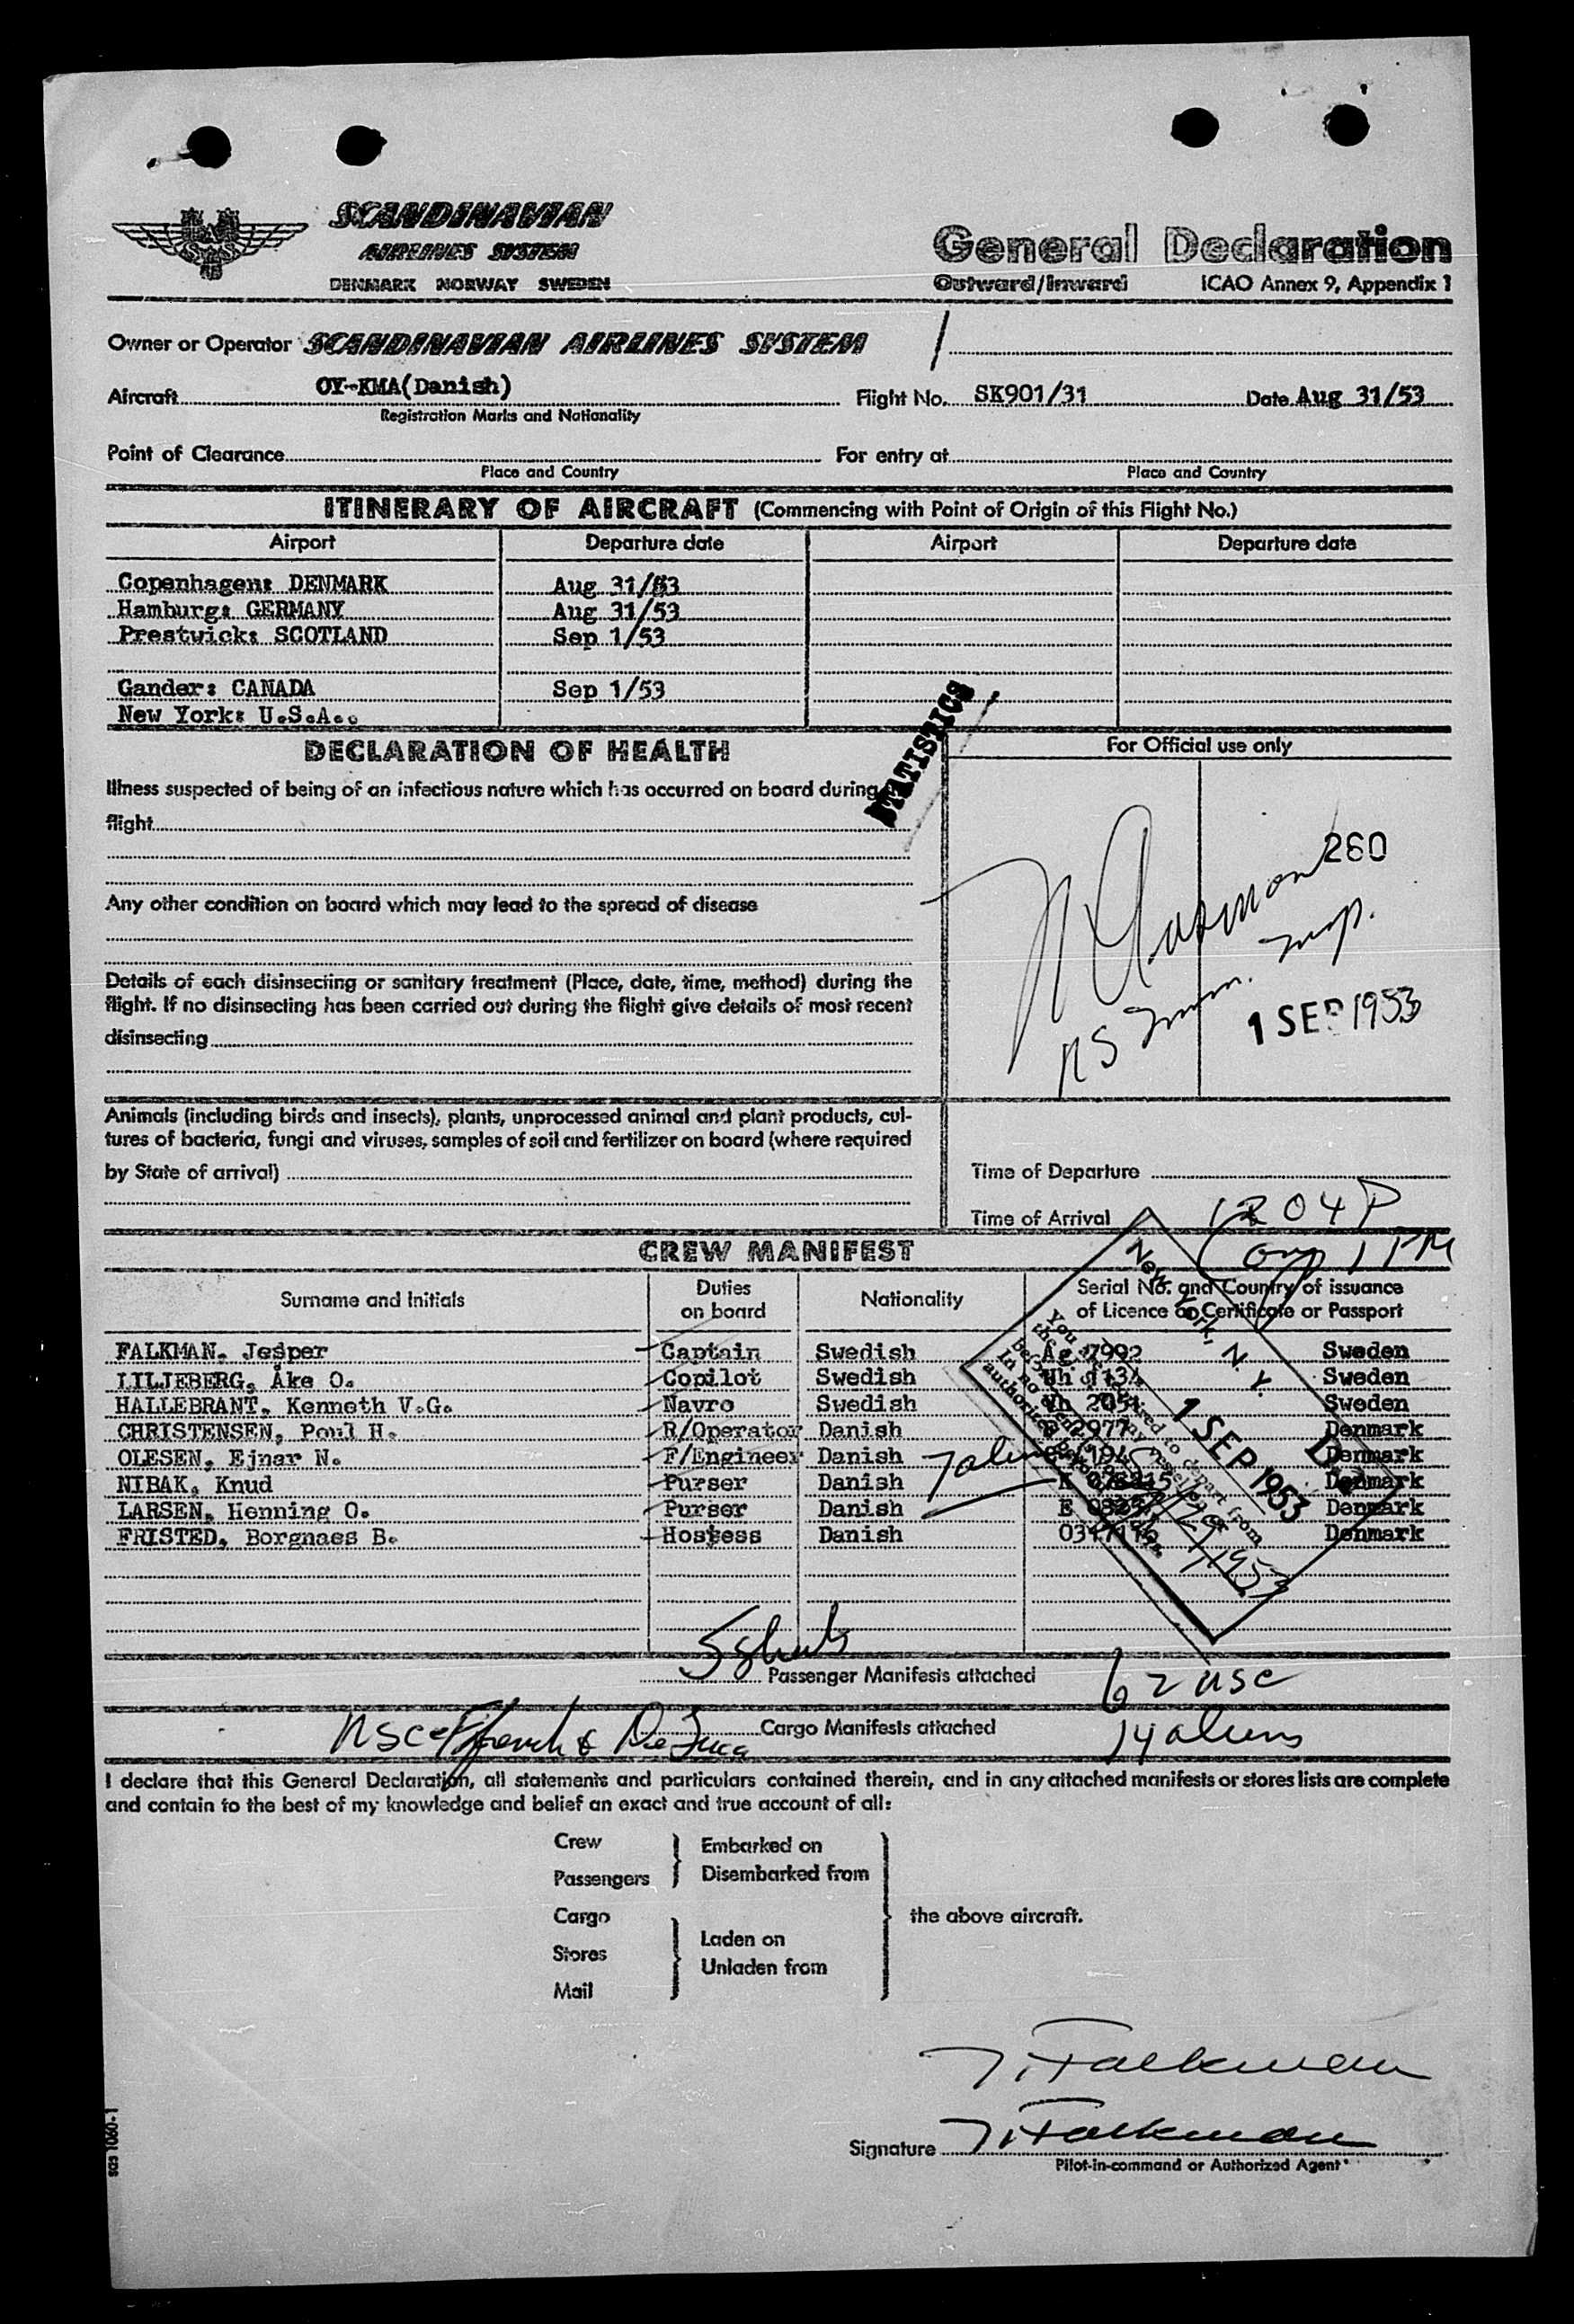 SCANDINAVIAN
AIRLINES SYSTEM
DENMARK NORWAY SWEDEN
General Declaration
Outward/Inward ICAO Annex 9, Appendix 1
Owner or Operator SCANDINAVIAN AIRLINES SYSTEM
Aircraft OY-KMA(Danish) Flight No. SK901/31 Date Aug 31/53
Registration Marks and Nationality
Point of Clearance For entry at
Place and Country Place and Country
ITINERARY OF AIRCRAFT (Commencing with Point of Origin of this Flight No.)
Airport Departure date Airport Departure date
Copenhagen: DENMARK Aug 31/53
Hamburg: GERMANY Aug 31/53
Prestwick: SCOTLAND Sep 1/53
Gander: CANADA Sep 1/53
New York: U.S.A..
STATISTICS
DECLARATION OF HEALTH
For Official use only
Illness suspected of being of an infectious nature which has occurred on board during
flight
260
Any other condition on board which may lead to the spread of disease
Insp.
Details of each disinsecting or sanitary treatment (Place, date, time, method) during the
flight. If no disinsecting has been carried out during the flight give details of most recent
disinsecting
Imm.
1 SEP 1953
Animals (including birds and insects), plants, unprocessed animal and plant products, cul-
tures of bacteria, fungi and viruses, samples of soil and fertilizer on board (where required
by State of arrival)
Time of Departure
Time of Arrival 1204P
1 PM
CREW MANIFEST
Surname and Initials Duties on board Nationality Serial No. and Country of issuance of Licence or Certificate or Passport
FALKMAN, Jesper Captain Swedish 7992 Sweden
LILJEBERG, Åke O. Copilot Swedish Sweden
HALLEBRANT, Kenneth V.G. Navro Swedish Sweden
CHRISTENSEN, Poul H. R/Operator Danish Denmark
OLESEN, Ejnar N. F/Engineer Danish Denmark
NIBAK, Knud Purser Danish Denmark
LARSEN, Henning O. Purser Danish Denmark
FRISTED, Borgnaes B. Hostess Danish Denmark
New York, N. Y.
1 SEP 1953
Passenger Manifests attached
62 usc
Cargo Manifests attached
14 aliens
I declare that this General Declaration, all statements and particulars contained therein, and in any attached manifests or stores lists are complete
and contain to the best of my knowledge and belief an exact and true account of all:
Crew Embarked on
Passengers Disembarked from
Cargo the above aircraft.
Stores Laden on
Mail Unladen from
J. Falkman
Signature J. Falkman
Pilot-in-command or Authorized Agent
sas 1060-1